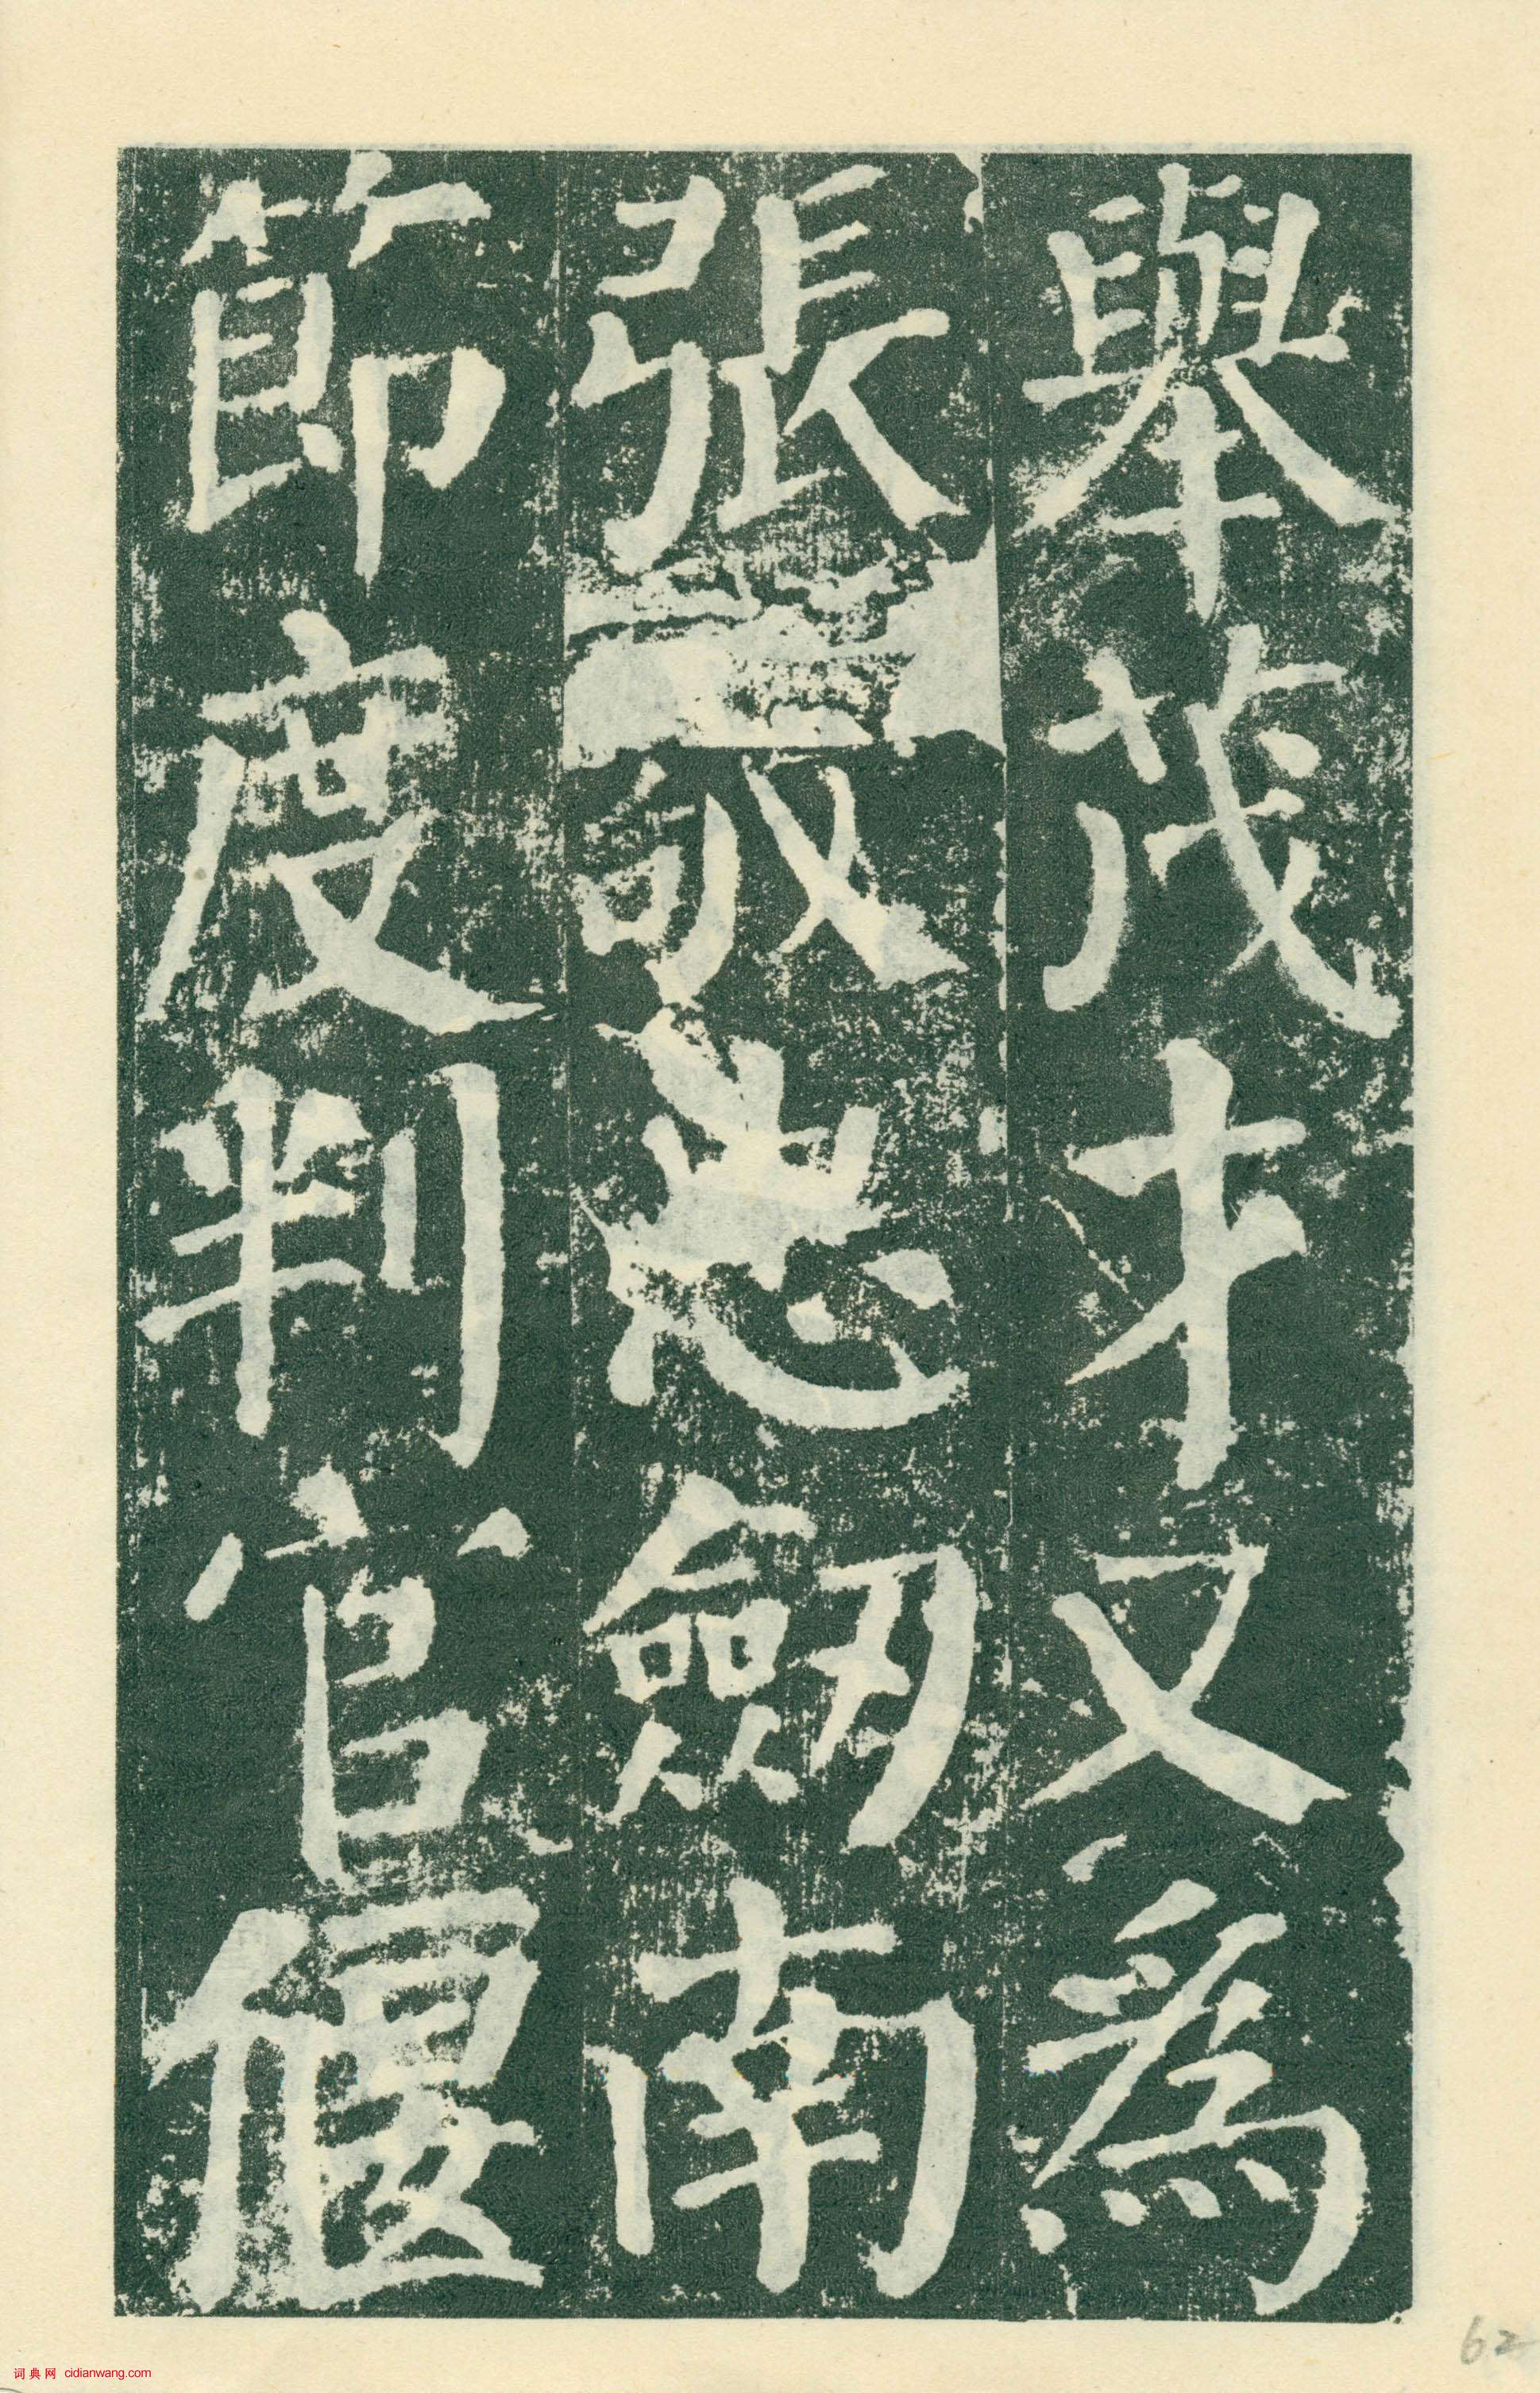 舉茂才又為
張敬忠劒南
節度判官偃
62
词典网 cidianwang.com